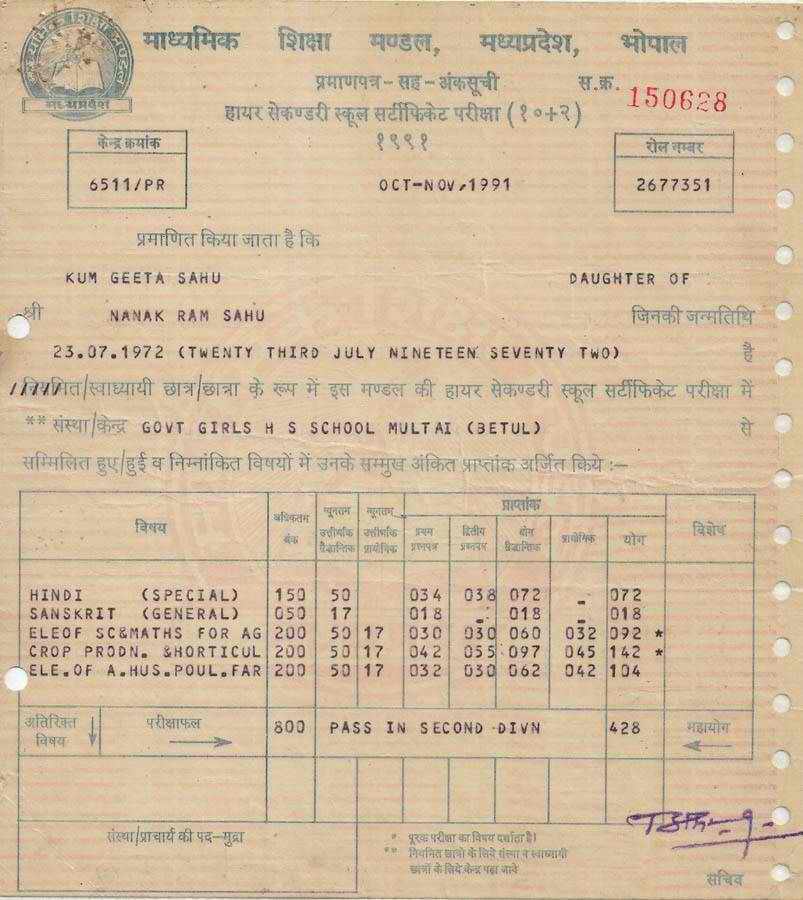 माध्यमिक शिक्षा मण्डल, मध्यप्रदेश, भोपाल
मध्यप्रदेश
प्रमाणपत्र-सह-अंकसूची स.क्र. 150628
हायर सेकण्डरी स्कूल सर्टीफिकेट परीक्षा (१०+२)
केन्द्र क्रमांक १९९१ रोल नम्बर
6511/PR OCT-NOV,1991 2677351
प्रमाणित किया जाता है कि
KUM GEETA SAHU DAUGHTER OF
श्री NANAK RAM SAHU जिनकी जन्मतिथि
23.07.1972 (TWENTY THIRD JULY NINETEEN SEVENTY TWO) है
नियमित/स्वाध्यायी छात्र/छात्रा के रूप में इस मण्डल की हायर सेकण्डरी स्कूल सर्टीफिकेट परीक्षा में
** संस्था/केन्द्र GOVT GIRLS H S SCHOOL MULTAI (BETUL) से
सम्मिलित हुए/हुई व निम्नांकित विषयों में उनके सम्मुख अंकित प्राप्तांक अर्जित किये :-
विषय अधिकतम अंक न्यूनतम उत्तीर्णांक सैद्धान्तिक न्यूनतम उत्तीर्णांक प्रायोगिक प्राप्तांक विशेष
प्रथम प्रश्नपत्र द्वितीय प्रश्नपत्र योग सैद्धान्तिक प्रायोगिक योग
HINDI (SPECIAL) 150 50 034 038 072 - 072
SANSKRIT (GENERAL) 050 17 018 - 018 - 018
ELEOF SC&MATHS FOR AG 200 50 17 030 030 060 032 092 *
CROP PRODN. &HORTICUL 200 50 17 042 055 097 045 142 *
ELE.OF A.HUS.POUL.FAR 200 50 17 032 030 062 042 104
अतिरिक्त विषय परीक्षाफल 800 PASS IN SECOND DIVN 428 महायोग
संस्था/प्राचार्य की पद-मुद्रा
* पूरक परीक्षा का विषय दर्शाता है।
** नियमित छात्रों के लिये संस्था व स्वाध्यायी
छात्रों के लिये केन्द्र पढ़ा जावे
सचिव